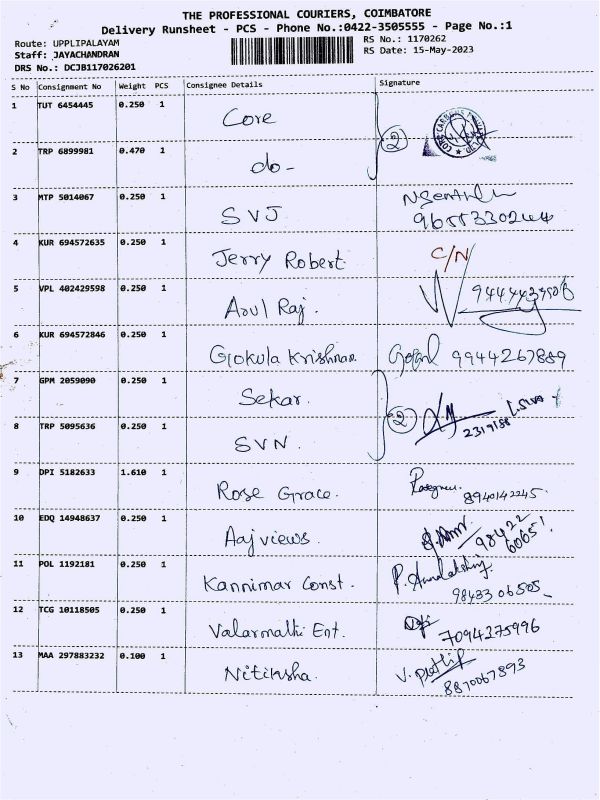 THE PROFESSIONAL COURIERS, COIMBATORE
Delivery Runsheet - PCS - Phone No.:0422-3505555 - Page No.:1
Route: UPPLIPALAYAM
RS No.: 1170262
Staff: JAYACHANDRAN
RS Date: 15-May-2023
DRS No.: DCJB117026201
S No Consignment No Weight PCS Consignee Details Signature
1 TUT 6454445 0.250 1 Core
2
2 TRP 6899981 0.470 1 do-
3 MTP 5014067 0.250 1 SVJ
4 KUR 694572635 0.250 1 Jerry Robert C/N
5 VPL 402429598 0.250 1 Arul Raj.
6 KUR 694572846 0.250 1 Gokula Krishnan 9944267889
7 GPM 2059090 0.250 1 Sekar.
2
8 TRP 5095636 0.250 1 SVN. 2319188
9 DPI 5182633 1.610 1 Rose Grace. 8940142245.
10 EDQ 14948637 0.250 1 Aajviews. 98422
60651
11 POL 1192181 0.250 1 Kannimar Const. 98433 06505
12 TCG 10118505 0.250 1 Valarmathi Ent. 7094375996
13 MAA 297883232 0.100 1 Nitiksha. 8870067893